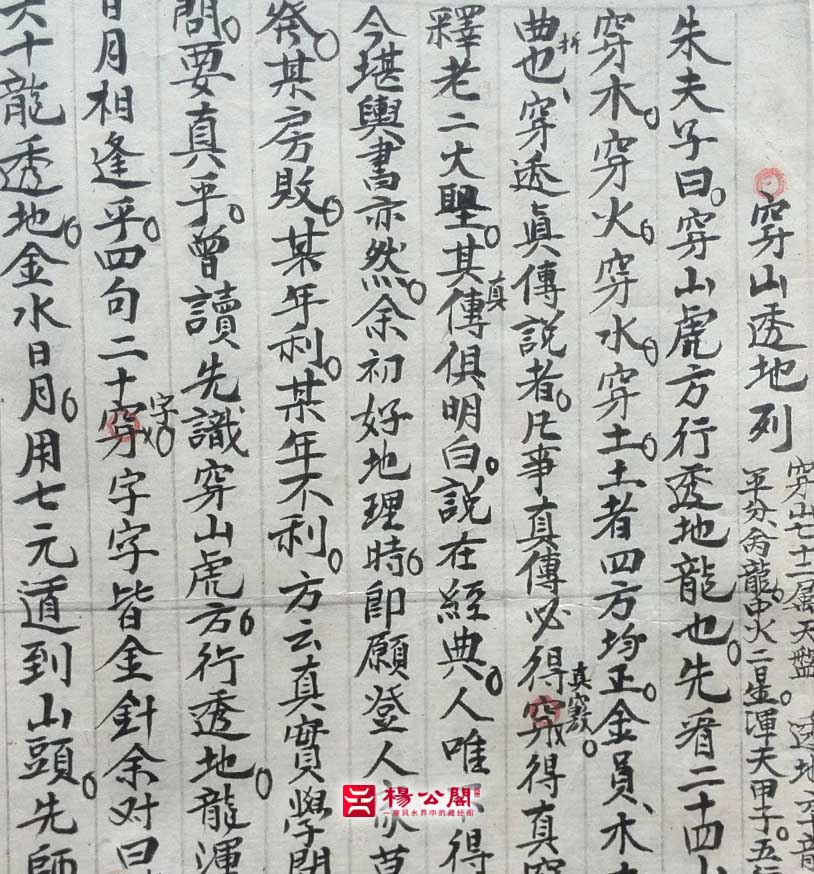 穿山透地列
穿山七十二属天盤 透地六十龍
平分禽龍中火二星渾天甲子五行
朱夫子曰穿山虎方行透地龍也先看二十四山
穿木穿火穿水穿土土者四方均正金員木
曲折也穿透真傳說者凡事真傳必得真窾得真
釋老二大聖其真傳俱明白說在經典人唯 得
今堪輿書亦然余初好地理時即願登人家
發某房敗某年利某年不利方云真實學
問要真乎曾讀先識穿山虎方行透地龍渾
日月相逢乎四句二十字字字皆金針余对曰
六十龍透地金水日月用七元遁到山頭先師
楊公閣